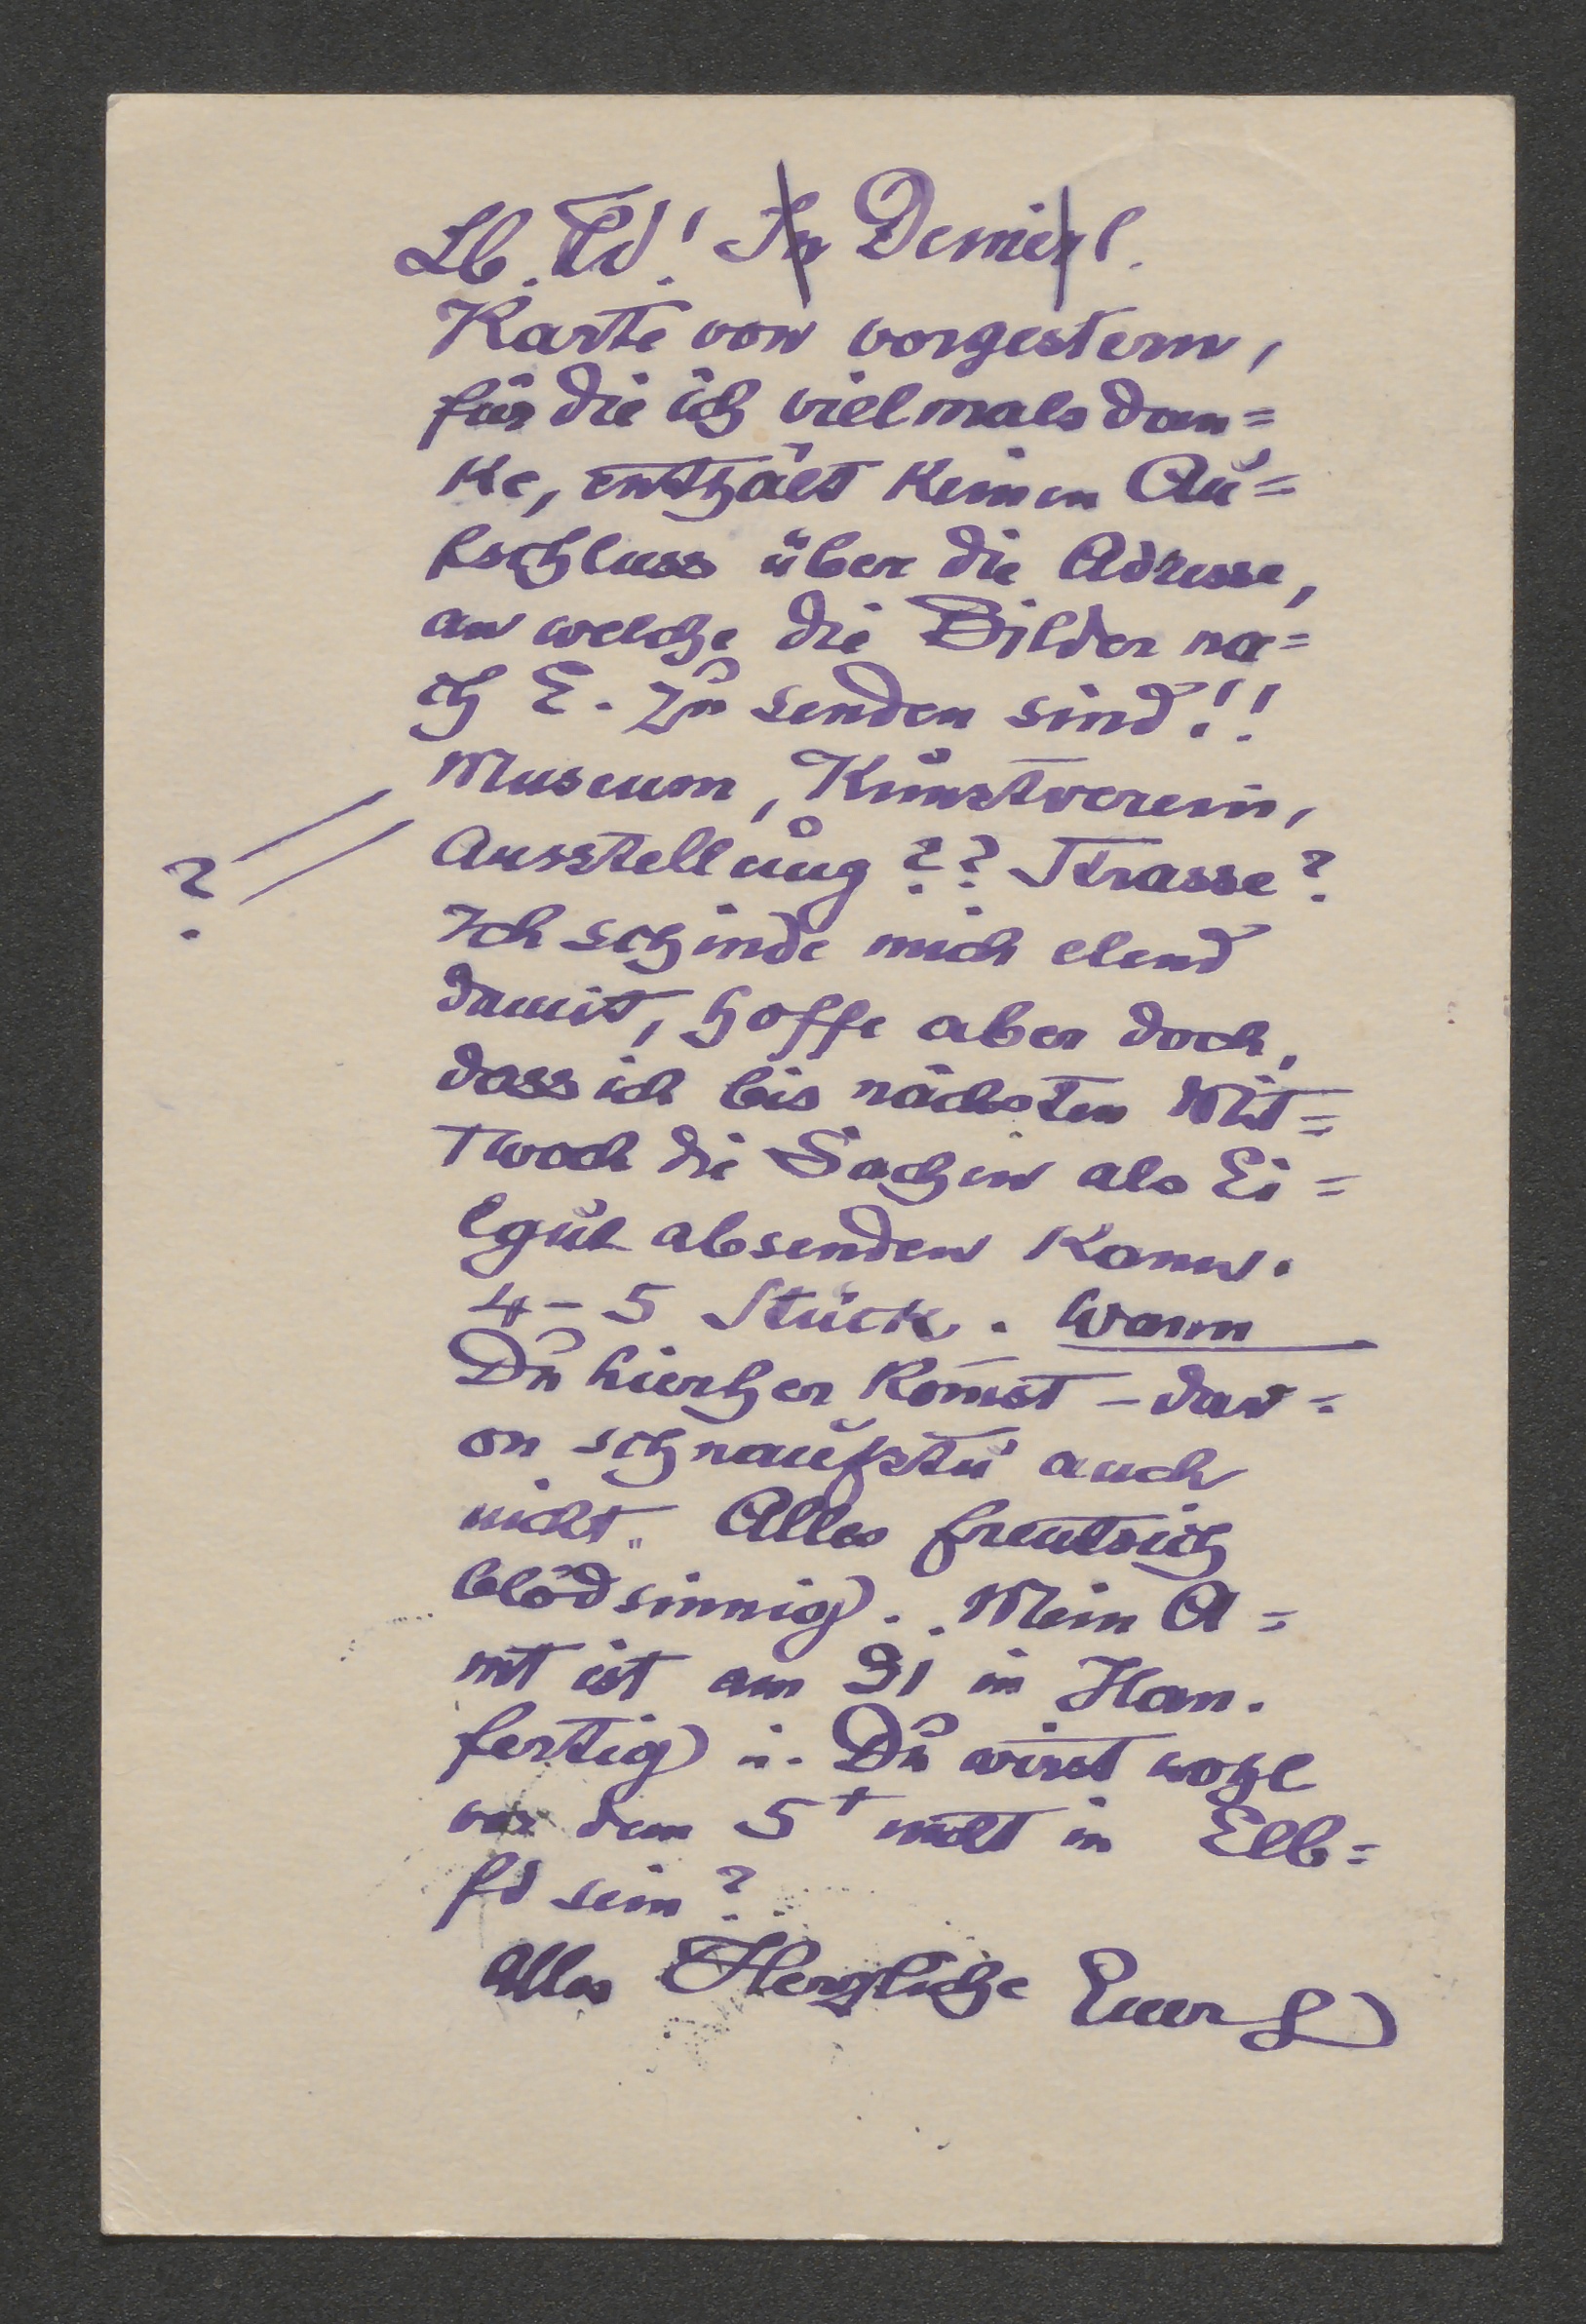 Lb. Ed.! In Deine l.
Karte von vorgestern,
für die ich vielmals dan=
ke, enthält keinen Au=
fschluss über die Adresse,
an welche die Bilder na=
ch E. zu senden sind!!
Museum, Kunstverein,
Ausstellung?? Strasse?
?
Ich schinde mich elend
damit, hoffe aber doch,
dass ich bis nächsten Mit=
twoch die Sachen als Ei=
lgut absenden kann.
4-5 Stück. Wann
Du hierher komst – dav=
on schnaufstu auch
nicht. Alles freut sich
blödsinnig. Mein A=
mt ist am 31 in Han.
fertig u. Du wirst wohl
vor dem 5t nicht in Elb=
fd sein?
Alles Herzliche Euer